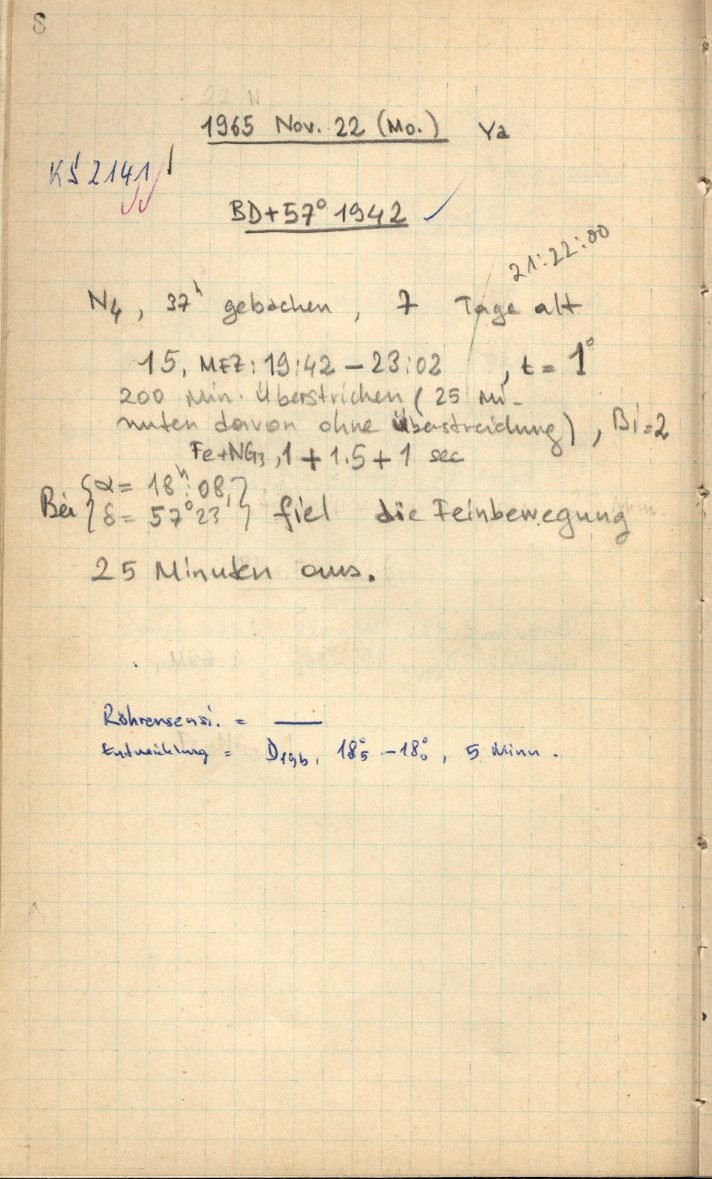 8
1965 Nov. 22 (Mo.) Ya
KS 2141
BD+57° 1942
21:22:00
N4, 37h gebachen, 7 Tage alt
15, MEZ: 19:42 – 23:02, t = 1°
200 Min. Überstrichen (25 Mi-
nuten davon ohne Überstreichung), Bi=2
Fe+NG3, 1 + 1.5 + 1 sec
Bei { α = 18h 08,
δ = 57° 23' } fiel die Feinbewegung
25 Minuten aus.
Röhrensensi. = —
Entwicklung = D19b, 18°5 – 18°0, 5 Minn.